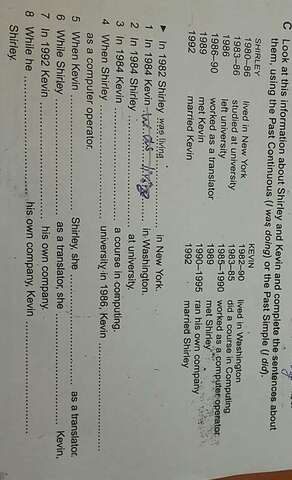 C Look at this information about Shirley and Kevin and complete the sentences about
them, using the Past Continuous (I was doing) or the Past Simple (I did).
SHIRLEY
1982 lived in New York
1983–86 studied at university
1986 left university
1986–90 worked as a translator
1989 met Kevin
1992 married Kevin
KEVIN
1982–90 lived in Washington
1983–85 did a course in Computing
1985–1990 worked as a computer operator
1989 met Shirley
1990–1995 ran his own company
1992 married Shirley
► In 1982 Shirley was living in New York.
1 In 1984 Kevin was living in Washington.
2 In 1984 Shirley at university.
3 In 1984 Kevin a course in computing.
4 When Shirley university in 1986, Kevin
as a computer operator.
5 When Kevin Shirley, she as a translator.
6 While Shirley as a translator, she Kevin.
7 In 1992 Kevin his own company.
8 While he his own company, Kevin
Shirley.